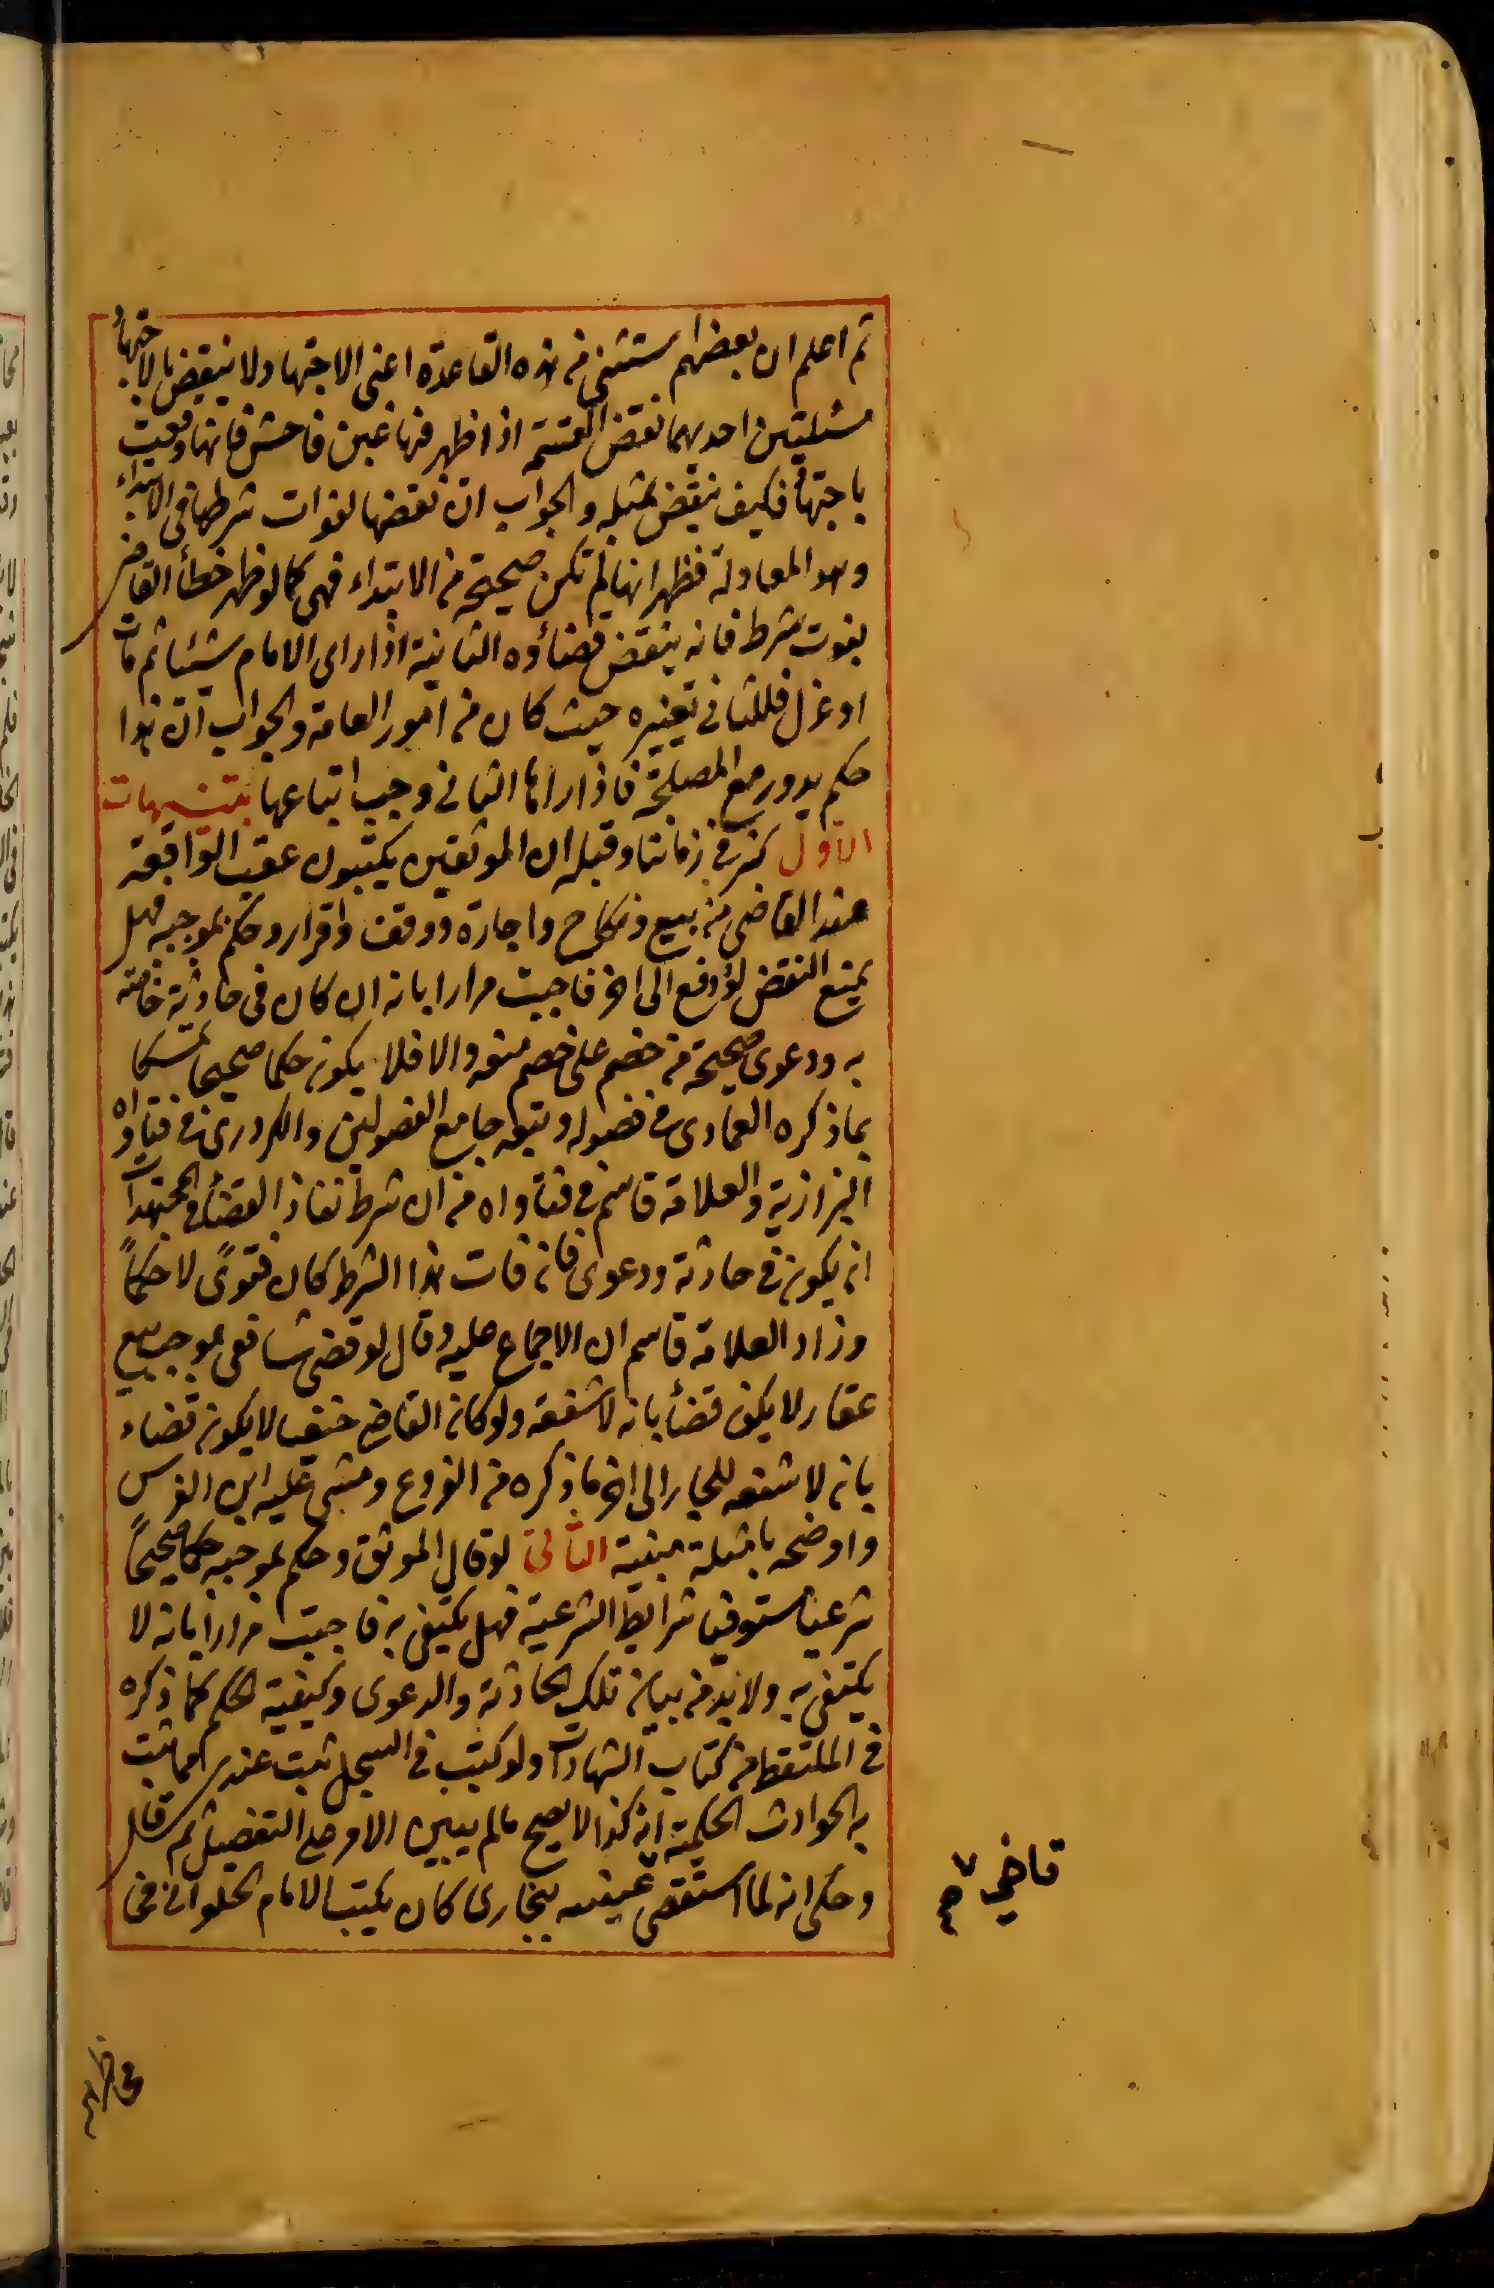 ثم اعلم ان بعضهم استثنى من هذه القاعدة اعنى الاجتهاد لا ينقض بالاجتهاد
مسئلتين احديهما نقض القسمة اذا ظهر فيها غبن فاحش فانها وقعت
باجتهاد فكيف ينقض بمثله والجواب ان نقضها لفوات شرطها فى الابتداء
وهو المعادلة فظهر انها لم تكن صحيحة من الابتداء فهى كما لو ظهر خطأ القاضى
بفوت شرط فانه ينقض قضاؤه الثانية اذا راى الامام شيئا ثم مات
او عزل فللثانى تغييره حيث كان من امور العامة والجواب ان هذا
حكم يدور مع المصلحة فاذا راها الثانى وجب اتباعها تنبيهات
الاول كثر فى زماننا وقبله ان الموثقين يكتبون عقب الواقعة
عند القاضى من بيع ونكاح واجارة ووقف واقرار وحكم بموجبه فهل
يمنع النقض لو رفع الى اخر فاجبت مرارا بانه ان كان فى حادثة خاصة
به ودعوى صحيحة من خصم على خصم منعه والا فلا يكون حكما صحيحا تمسكا
بما ذكره العمادى فى فصوله وتبعه جامع الفصولين والكردرى فى فتاواه
البزازية والعلامة قاسم فى فتاواه من ان شرط نفاذ القضأ فى المجتهدات
ان يكون فى حادثة ودعوى فان فات هذا الشرط كان فتوىً لا حكماً
وزاد العلامة قاسم ان الاجماع عليه وقال لو قضى شافعى بموجب بيع
عقار لا يكون قضأ بانه لا شفعة ولو كان القاضى حنفيا لا يكون قضاء
بان لا شفعة للجار الى اخر ما ذكره من الفروع ومشى عليه ابن الغرس
واوضحه بامثلة مبنية الثانى لو قال الموثق وحكم بموجبه حكما صحيحاً
شرعيا مستوفيا شرايط الشرعية فهل يكتفى به فاجبت مرارا بانه لا
يكتفى به ولا بد من بيان تلك الحادثة والدعوى وكيفية الحكم كما ذكره
فى الملتقط من كتاب الشهادات ولو كتب فى السجل ثبت عندى بما ثبت
به الحوادث الحكمية انه كذا لا يصح ما لم يبين الامر على التفصيل ثم قال
وحكى انه لما استقضى عنبسه ببخارى كان يكتب الامام الحلوانى فى
قاضى صح